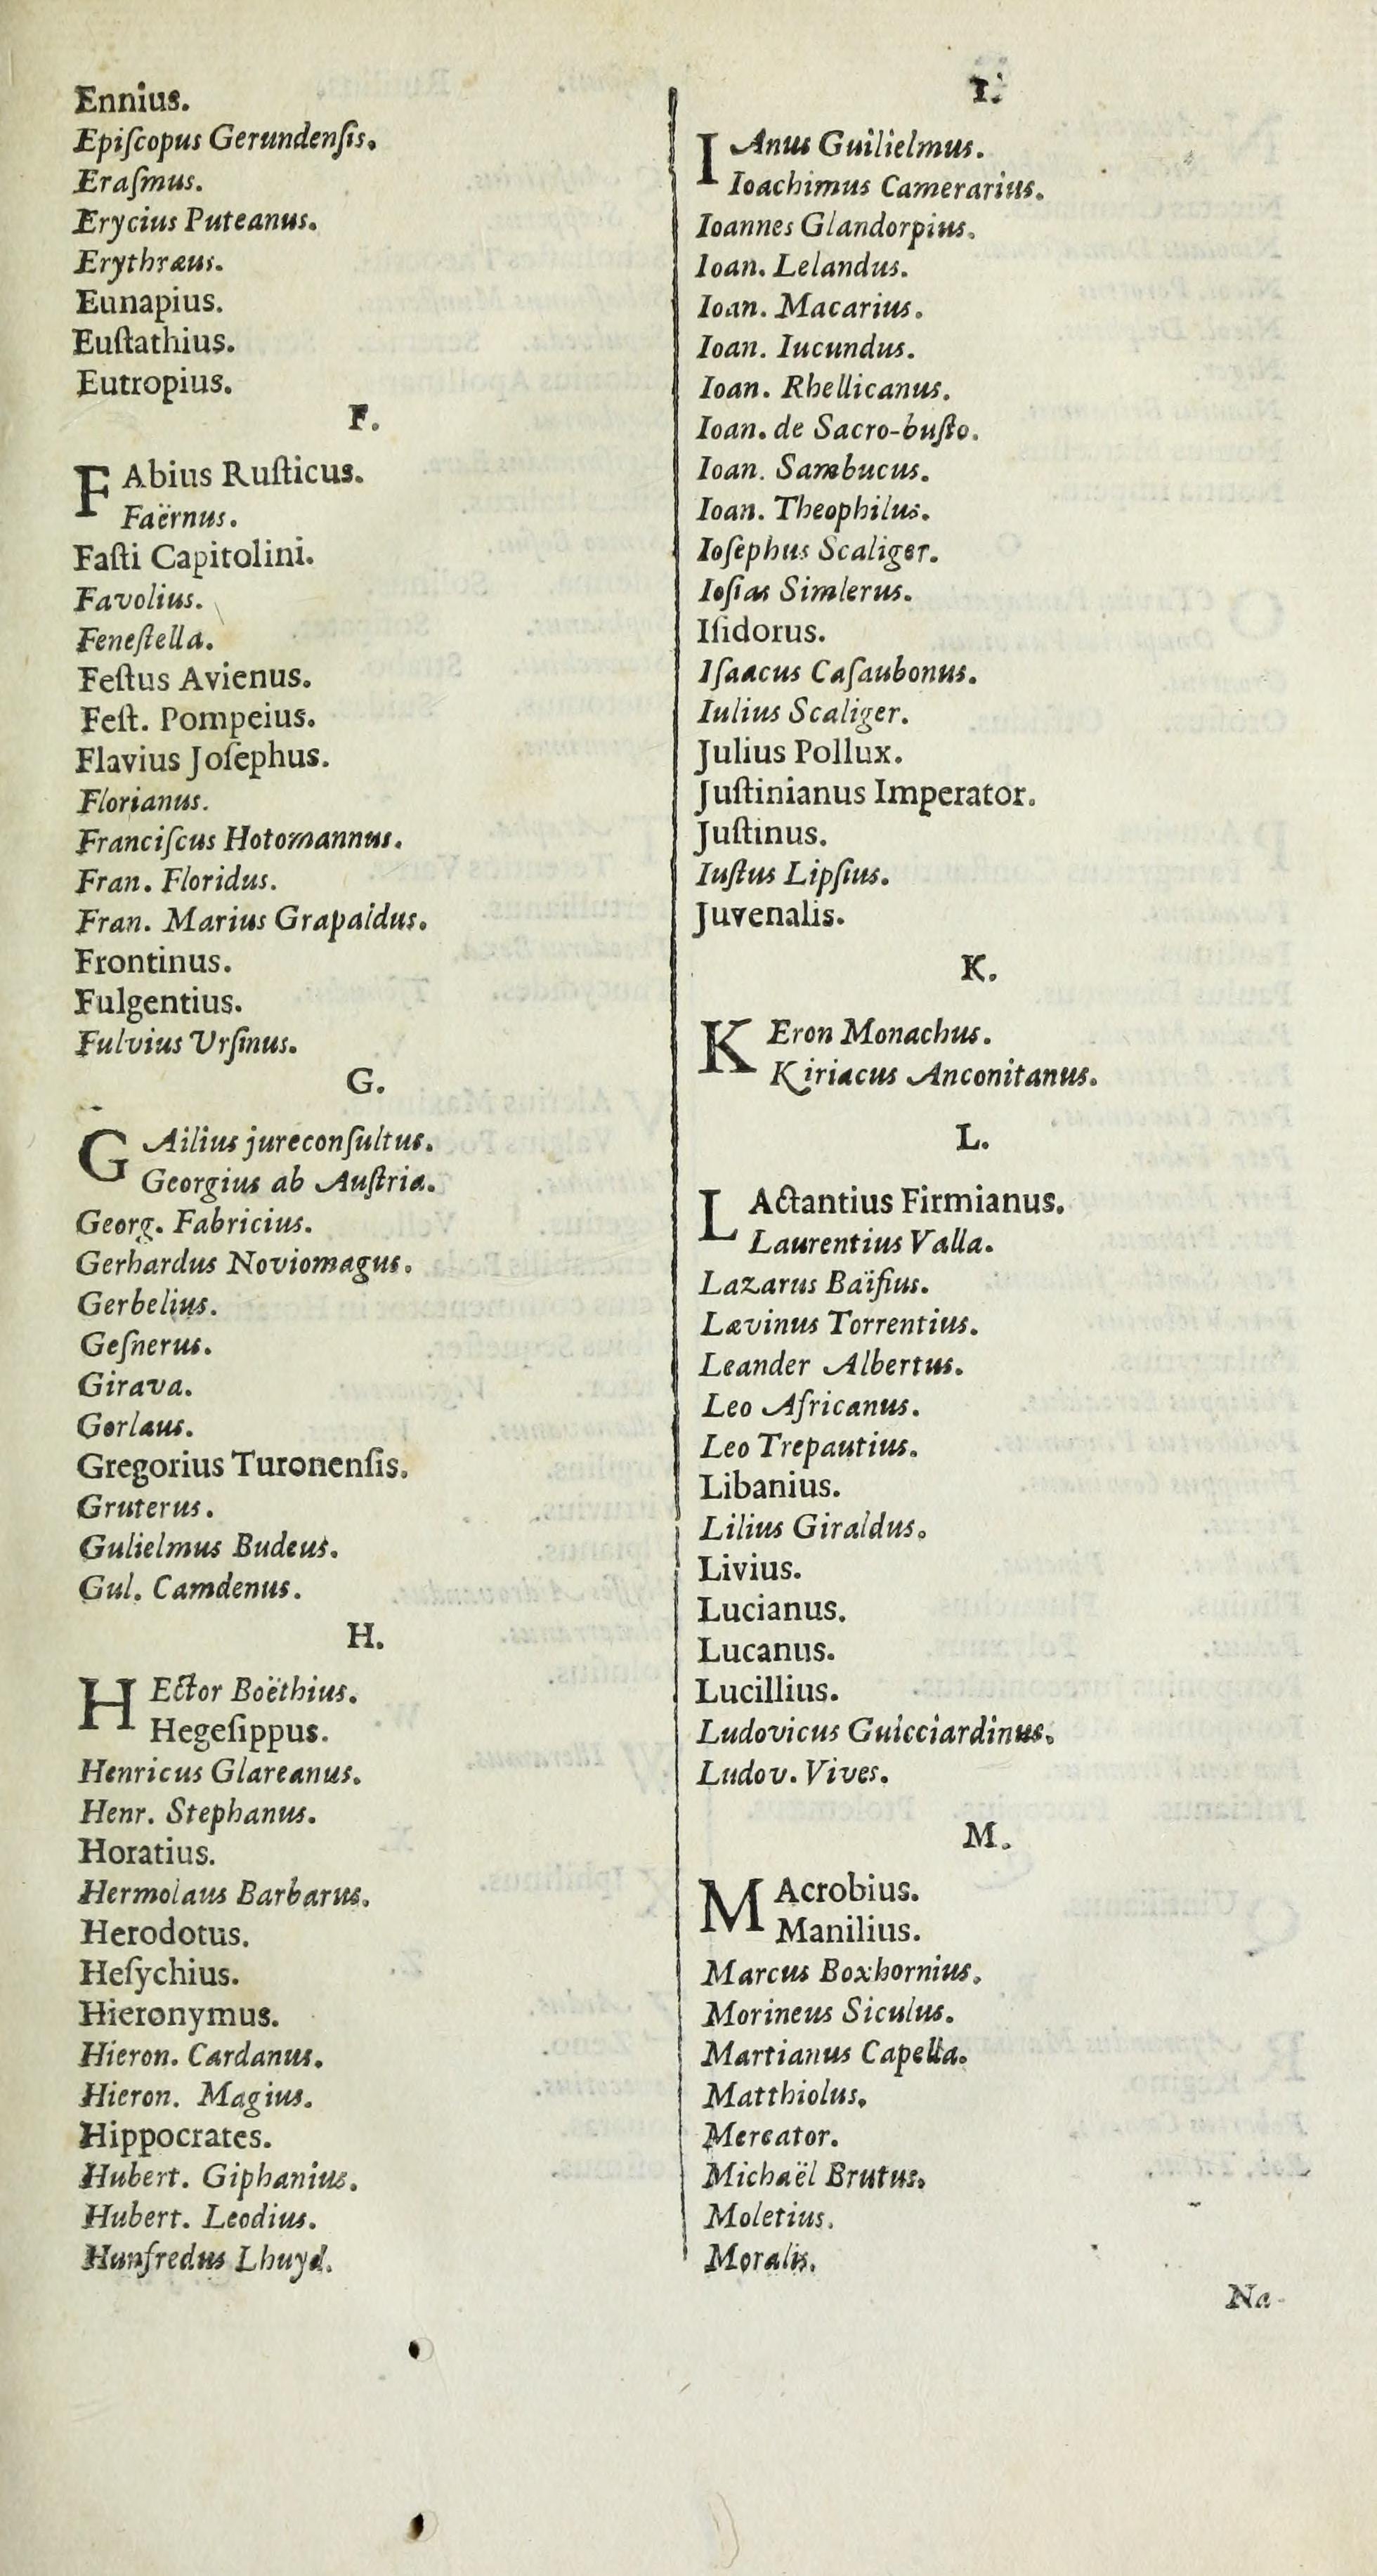 Ennius.
Epiſcopus Gerundenſis.
Eraſmus.
Erycius Puteanus.
Erythræus.
Eunapius.
Euſtathius.
Eutropius.
F.
FAbius Ruſticus.
Faërnus.
Faſti Capitolini.
Favolius.
Feneſtella.
Feſtus Avienus.
Feſt. Pompeius.
Flavius Joſephus.
Florianus.
Franciſcus Hotomannus.
Fran. Floridus.
Fran. Marius Grapaldus.
Frontinus.
Fulgentius.
Fulvius Urſinus.
G.
GAilius jureconſultus.
Georgius ab Auſtria.
Georg. Fabricius.
Gerhardus Noviomagus.
Gerbelius.
Geſnerus.
Girava.
Gorlaus.
Gregorius Turonenſis.
Gruterus.
Gulielmus Budeus.
Gul. Camdenus.
H.
HEctor Boëthius.
Hegeſippus.
Henricus Glareanus.
Henr. Stephanus.
Horatius.
Hermolaus Barbarus.
Herodotus.
Heſychius.
Hieronymus.
Hieron. Cardanus.
Hieron. Magius.
Hippocrates.
Hubert. Giphanius.
Hubert. Leodius.
Hunfredus Lhuyd.
I.
IAnus Guilielmus.
Ioachimus Camerarius.
Ioannes Glandorpius.
Ioan. Lelandus.
Ioan. Macarius.
Ioan. Iucundus.
Ioan. Rhellicanus.
Ioan. de Sacro-buſto.
Ioan. Sambucus.
Ioan. Theophilus.
Ioſephus Scaliger.
Ioſias Simlerus.
Iſidorus.
Iſaacus Caſaubonus.
Iulius Scaliger.
Julius Pollux.
Juſtinianus Imperator.
Juſtinus.
Iuſtus Lipſius.
Juvenalis.
K.
KEron Monachus.
Kiriacus Anconitanus.
L.
LActantius Firmianus.
Laurentius Valla.
Lazarus Baïfius.
Lævinus Torrentius.
Leander Albertus.
Leo Africanus.
Leo Trepautius.
Libanius.
Lilius Giraldus.
Livius.
Lucianus.
Lucanus.
Lucillius.
Ludovicus Guicciardinus.
Ludov. Vives.
M.
MAcrobius.
Manilius.
Marcus Boxhornius.
Morineus Siculus.
Martianus Capella.
Matthiolus.
Mercator.
Michaël Brutus.
Moletius.
Moralis.
Na-